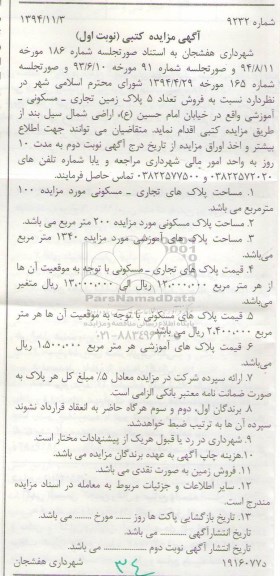 شماره ۹۲۳۲ ۱۳۹۴/۱۱/۳
آگهی مزایده کتبی (نوبت اول)
شهرداری هفشجان به استناد صورتجلسه شماره ۱۸۶ مورخه
۹۴/۸/۱۱ و صورتجلسه شماره ۹۱ مورخه ۹۳/۶/۱۰ و صورتجلسه
شماره ۱۶۵ مورخه ۱۳۹۴/۴/۲۹ شورای محترم اسلامی شهر در
نظردارد نسبت به فروش تعداد ۵ پلاک زمین تجاری ـ مسکونی ـ
آموزشی واقع در خیابان امام حسین (ع)، اراضی شمال سیل بند از
طریق مزایده کتبی اقدام نماید. متقاضیان می توانند جهت اطلاع
بیشتر و اخذ اوراق مزایده از تاریخ درج آگهی نوبت دوم به مدت ۱۰
روز به واحد امور مالی شهرداری مراجعه و یا با شماره تلفن های
۰۳۸۲۲۵۷۲۰۲۰ و ۰۳۸۲۲۵۷۷۵۰۰ تماس حاصل فرمایند.
۱. مساحت پلاک های تجاری ـ مسکونی مورد مزایده ۱۰۰
مترمربع می باشد.
۲. مساحت پلاک مسکونی مورد مزایده ۲۰۰ متر مربع می باشد.
۳. مساحت پلاک های آموزشی مورد مزایده ۱۳۴۰ متر مربع
می‌باشد.
۴. قیمت پلاک های تجاری ـ مسکونی با توجه به موقعیت آن ها
از هر متر مربع ۱۲،۰۰۰،۰۰۰ ریال الی ۱۳،۰۰۰،۰۰۰ ریال متغیر
می‌باشد.
۵. قیمت پلاک های مسکونی با توجه به موقعیت آن ها هر متر
مربع ۲،۴۰۰،۰۰۰ ریال می باشد.
۶. قیمت پلاک های آموزشی هر متر مربع ۱،۵۰۰،۰۰۰ ریال
می‌باشد.
۷. ارائه سپرده شرکت در مزایده معادل ۵٪ مبلغ کل هر پلاک به
صورت ضمانت نامه معتبر بانکی الزامی است.
۸. برندگان اول، دوم و سوم هرگاه حاضر به انعقاد قرارداد نشوند
سپرده آن ها به ترتیب ضبط خواهدشد.
۹. شهرداری در رد یا قبول هریک از پیشنهادات مختار است.
۱۰. هزینه چاپ آگهی به عهده برندگان مزایده می باشد.
۱۱. فروش زمین به صورت نقدی می باشد.
۱۲. سایر اطلاعات و جزئیات مربوط به معامله در اسناد مزایده
مندرج است.
۱۳. تاریخ بازگشایی پاکت ها روز ...... مورخ ........ می باشد.
تاریخ انتشارآگهی ............. می باشد.
تاریخ انتشار آگهی نوبت دوم ............... می باشد.
۱۹۱۶۰۷۷د شهرداری هفشجان
۳۴
ParsNamadData
۰۲۱-۸۸۳۴۹۶۷۰